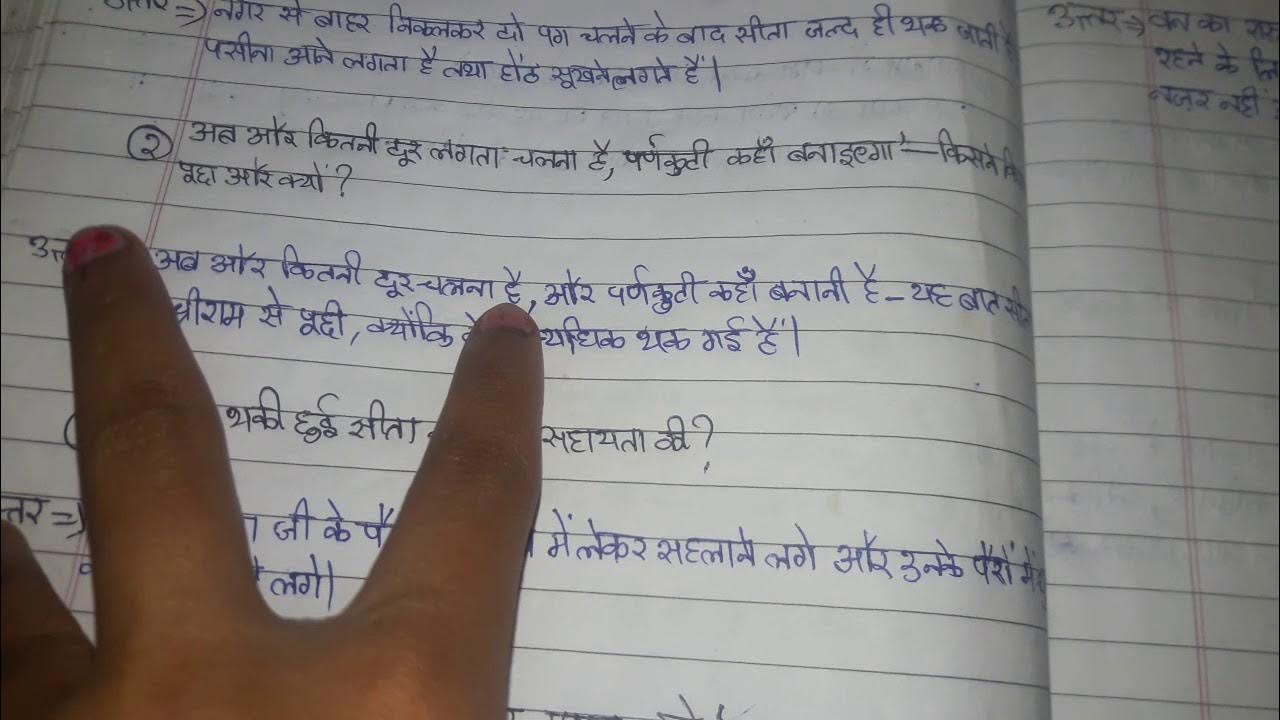 उत्तर => नगर से बाहर निकलकर दो पग चलने के बाद सीता जल्द ही थक जाती
पसीना आने लगता है तथा होंठ सूखने लगते हैं।
② अब और कितनी दूर लगता चलना है, पर्णकुटी कहाँ बनाइएगा - किसने
पूछा और क्यों?
अब और कितनी दूर चलना है, और पर्णकुटी कहाँ बनानी है - यह बात
श्रीराम से पूछी, क्योंकि थक गई हैं।
थकी हुई सीता सहायता की?
जी के में लेकर सहलाने लगे और उनके पैरों में
लगे।
उत्तर => वन का
रहने के
नज़र नहीं